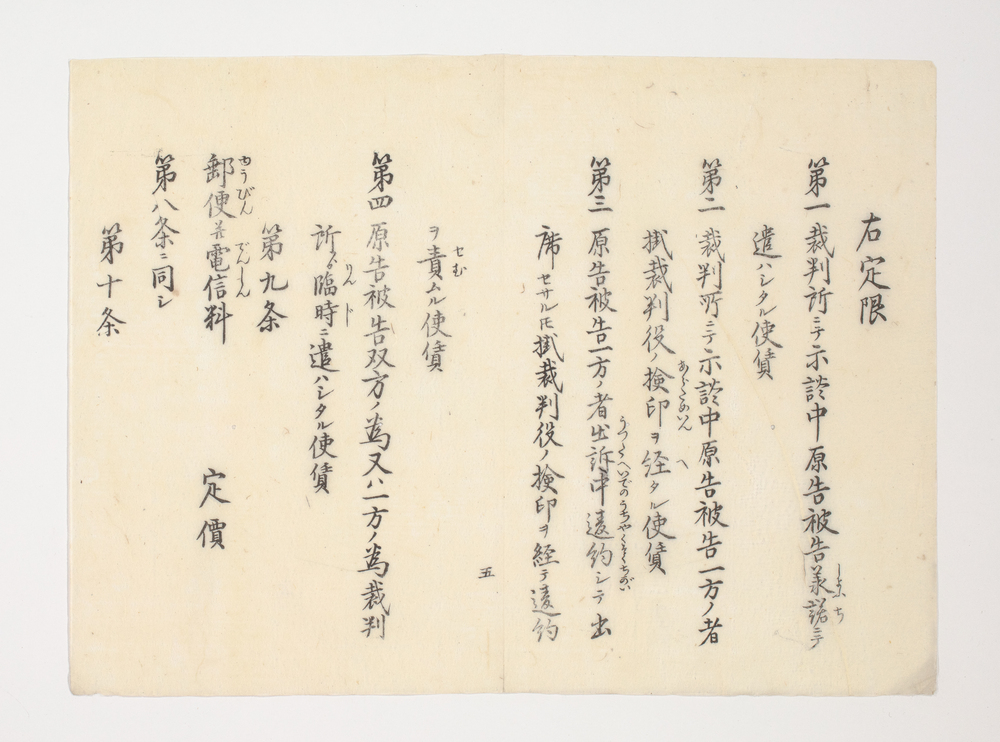 右定限
第一 裁判所ニテ示談中原告被告承諾ニテ
しようち
遣ハシタル使賃
第二 裁判所ニテ示談中原告被告一方ノ者
あらためいん へ
掛裁判役ノ撿印ヲ経タル使賃
うつたへいでのうちやくそくちがい
第三 原告被告一方ノ者出訴中違約シテ出
席セサル圧掛裁判役ノ撿印ヲ経テ違約
五
せむ
ヲ責ムル使賃
第四 原告被告双方ノ為又ハ一方ノ為裁判
りんド
所ゟ臨時ニ遣ハシタル使賃
第九条
ゆうびん でんしん
郵便并電信料 定價
第八条ニ同シ
第十条